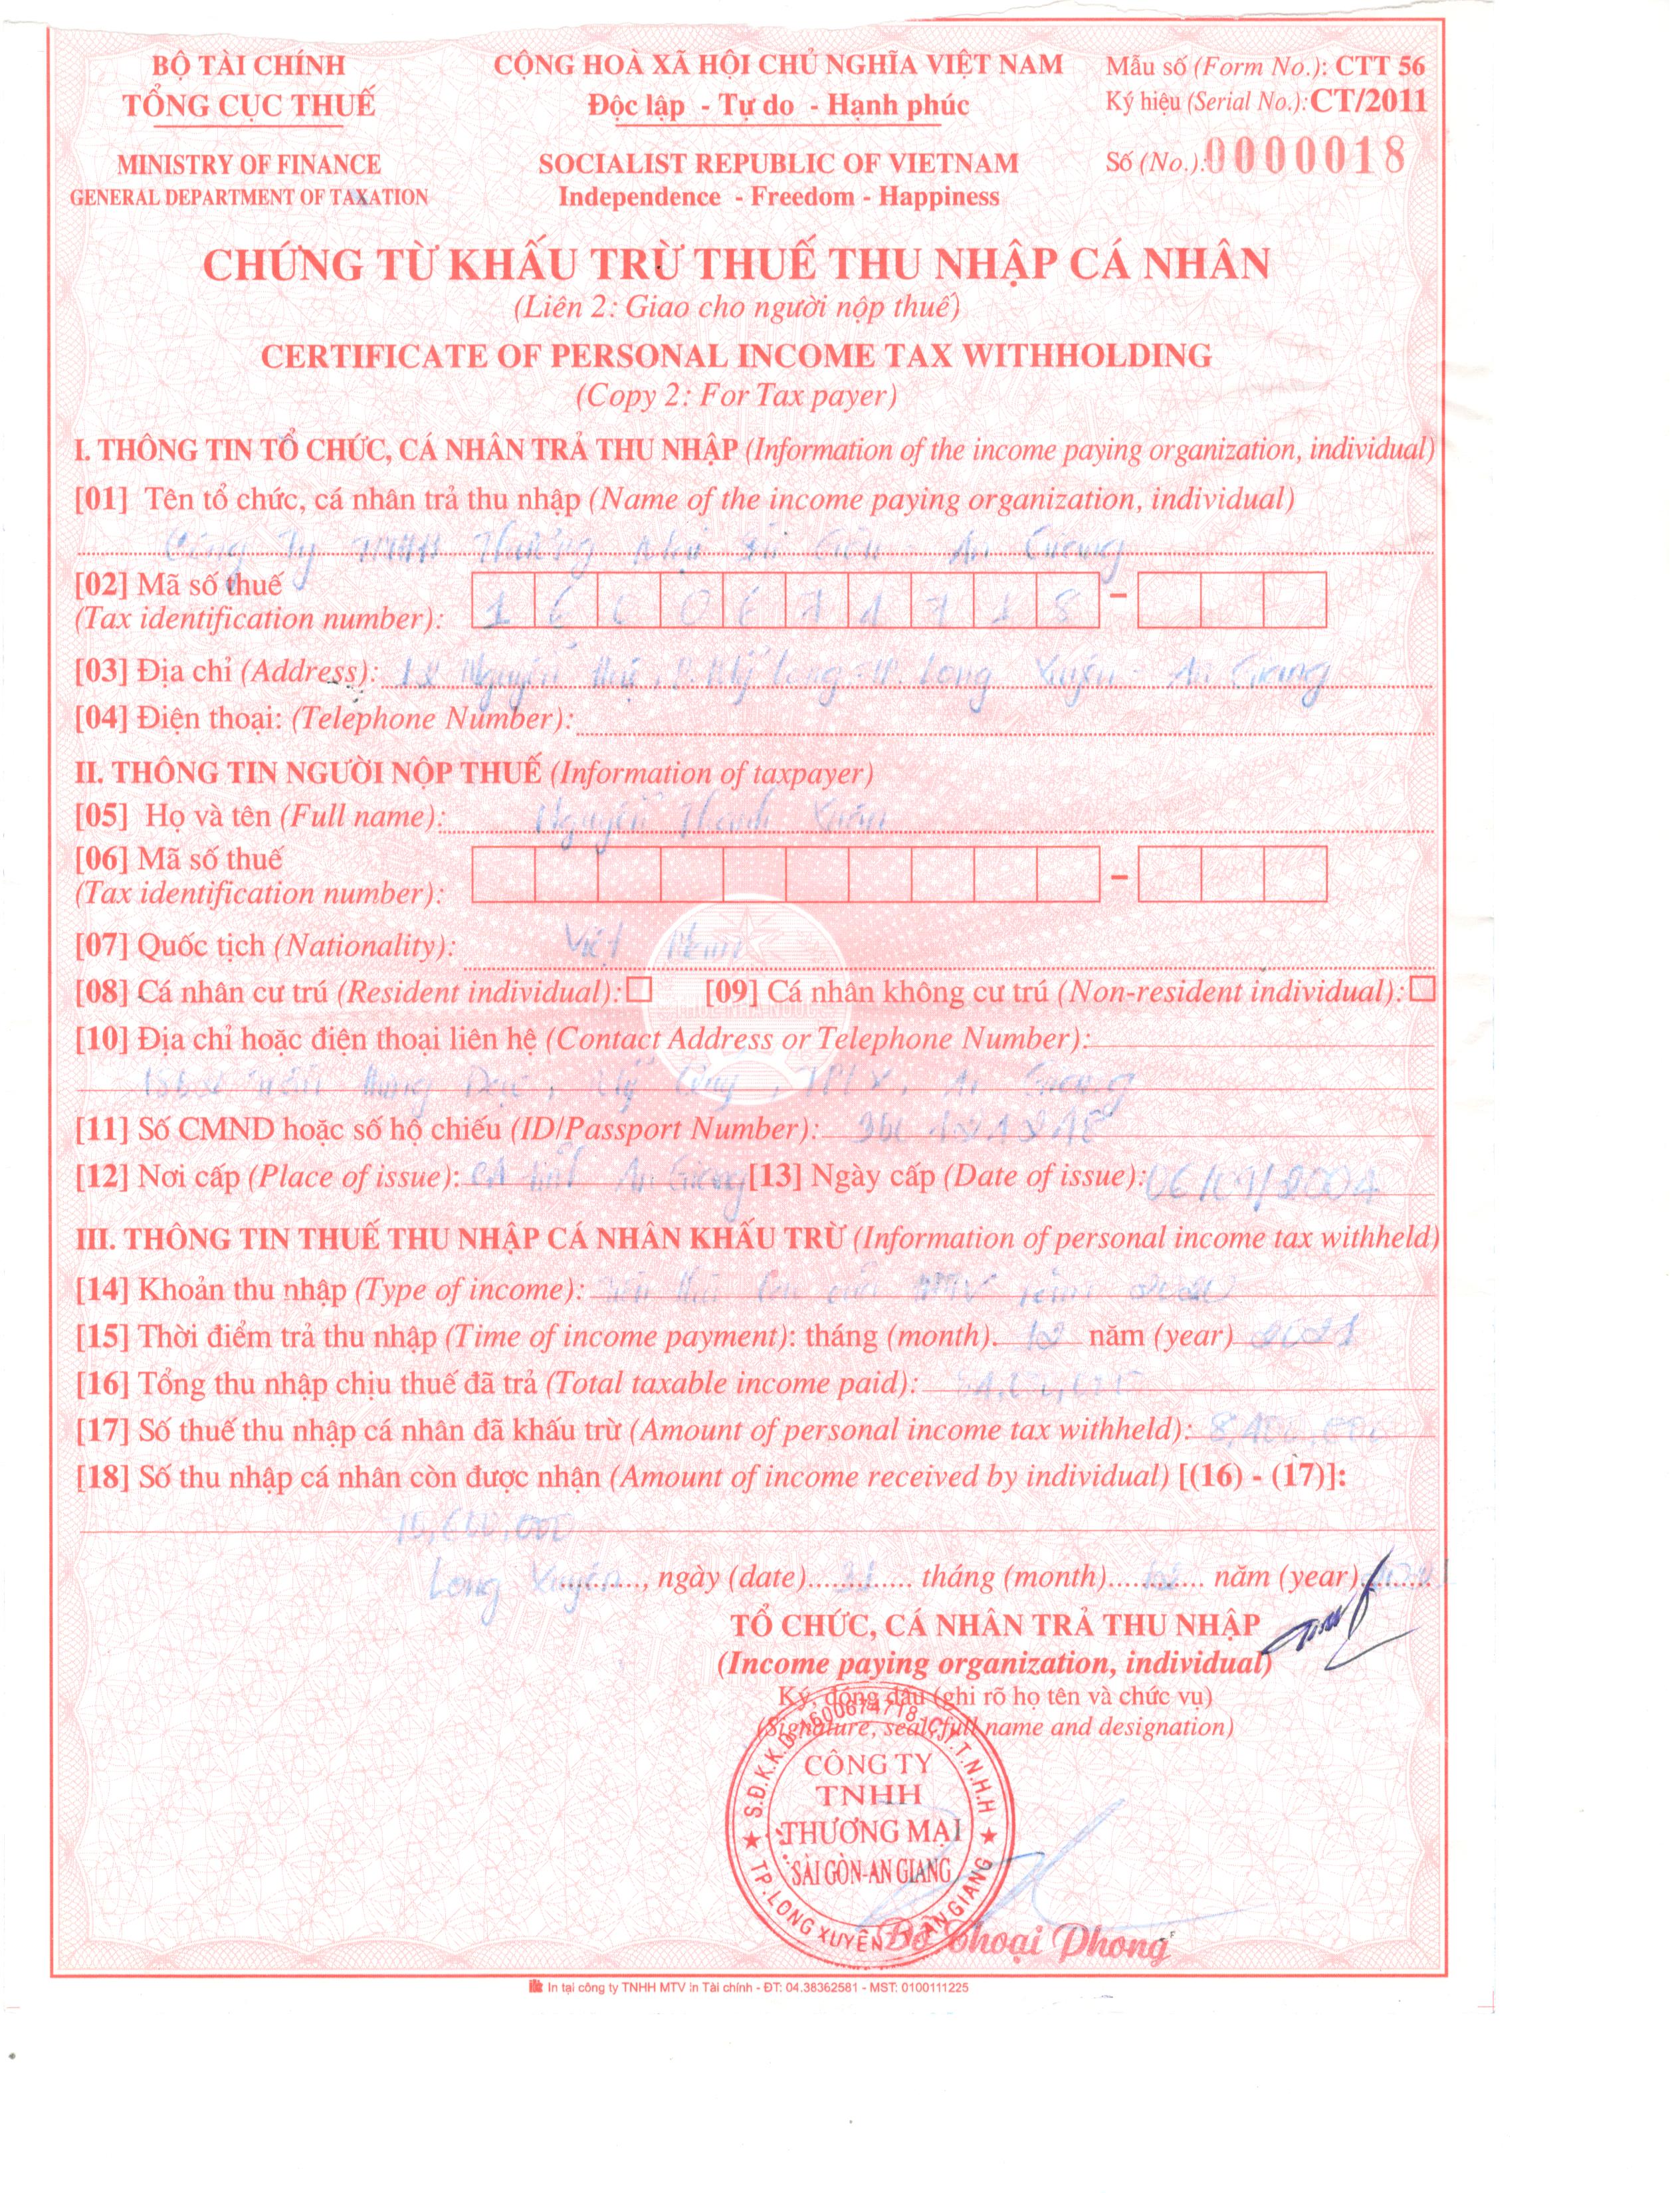 BỘ TÀI CHÍNH
TỔNG CỤC THUẾ
MINISTRY OF FINANCE
GENERAL DEPARTMENT OF TAXATION
CỘNG HOÀ XÃ HỘI CHỦ NGHĨA VIỆT NAM
Độc lập - Tự do - Hạnh phúc
SOCIALIST REPUBLIC OF VIETNAM
Independence - Freedom - Happiness
Mẫu số (Form No.): CTT 56
Ký hiệu (Serial No.): CT/2011
Số (No.): 0000018
CHỨNG TỪ KHẤU TRỪ THUẾ THU NHẬP CÁ NHÂN
(Liên 2: Giao cho người nộp thuế)
CERTIFICATE OF PERSONAL INCOME TAX WITHHOLDING
(Copy 2: For Tax payer)
I. THÔNG TIN TỔ CHỨC, CÁ NHÂN TRẢ THU NHẬP (Information of the income paying organization, individual)
[01] Tên tổ chức, cá nhân trả thu nhập (Name of the income paying organization, individual)
Công Ty TNHH Thương Mại Sài Gòn - An Giang
[02] Mã số thuế
(Tax identification number): 1 6 0 0 6 7 4 7 1 8 -
[03] Địa chỉ (Address): 12 Nguyễn Huệ, P. Mỹ Long - TP. Long Xuyên - An Giang
[04] Điện thoại: (Telephone Number):
II. THÔNG TIN NGƯỜI NỘP THUẾ (Information of taxpayer)
[05] Họ và tên (Full name): Nguyễn Thanh Xuân
[06] Mã số thuế
(Tax identification number): -
[07] Quốc tịch (Nationality): Việt Nam
[08] Cá nhân cư trú (Resident individual): [09] Cá nhân không cư trú (Non-resident individual):
[10] Địa chỉ hoặc điện thoại liên hệ (Contact Address or Telephone Number):
Trần Hưng Đạo, Mỹ TPLX, An Giang
[11] Số CMND hoặc số hộ chiếu (ID/Passport Number):
[12] Nơi cấp (Place of issue): CA tỉnh An Giang [13] Ngày cấp (Date of issue): 06/09/2004
III. THÔNG TIN THUẾ THU NHẬP CÁ NHÂN KHẤU TRỪ (Information of personal income tax withheld)
[14] Khoản thu nhập (Type of income): năm
[15] Thời điểm trả thu nhập (Time of income payment): tháng (month). 12 năm (year) 2021
[16] Tổng thu nhập chịu thuế đã trả (Total taxable income paid):
[17] Số thuế thu nhập cá nhân đã khấu trừ (Amount of personal income tax withheld): 8,400,000
[18] Số thu nhập cá nhân còn được nhận (Amount of income received by individual) [(16) - (17)]:
Long Xuyên, ngày (date) 31 tháng (month) 12 năm (year)
TỔ CHỨC, CÁ NHÂN TRẢ THU NHẬP
(Income paying organization, individual)
Ký, đóng dấu (ghi rõ họ tên và chức vụ)
(Signature, seal, full name and designation)
S.Đ.K.K.D: 1600674718-C.T.T.N.H.H
CÔNG TY
TNHH
THƯƠNG MẠI
SÀI GÒN-AN GIANG
TP.LONG XUYÊN - T.AN GIANG
Thoại Phong
In tại công ty TNHH MTV In Tài chính - ĐT: 04.38362581 - MST: 0100111225